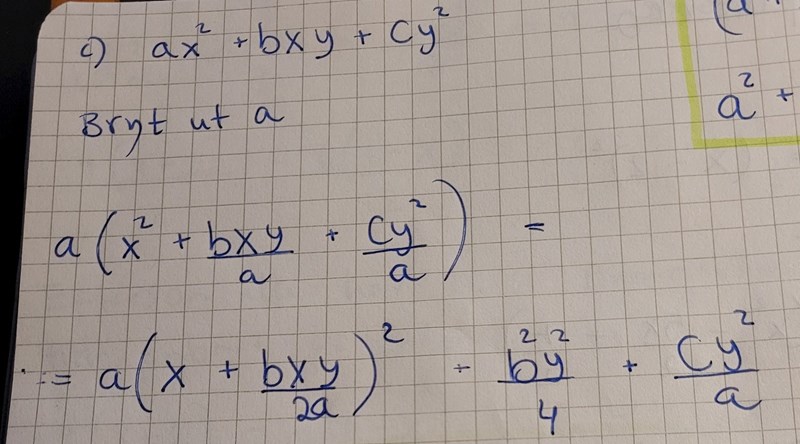 c) ax² + bxy + cy²
(a +
a² +
Bryt ut a
a(x² + bxy/a + cy²/a) =
= a(x + bxy/2a)² - b²y²/4 + cy²/a